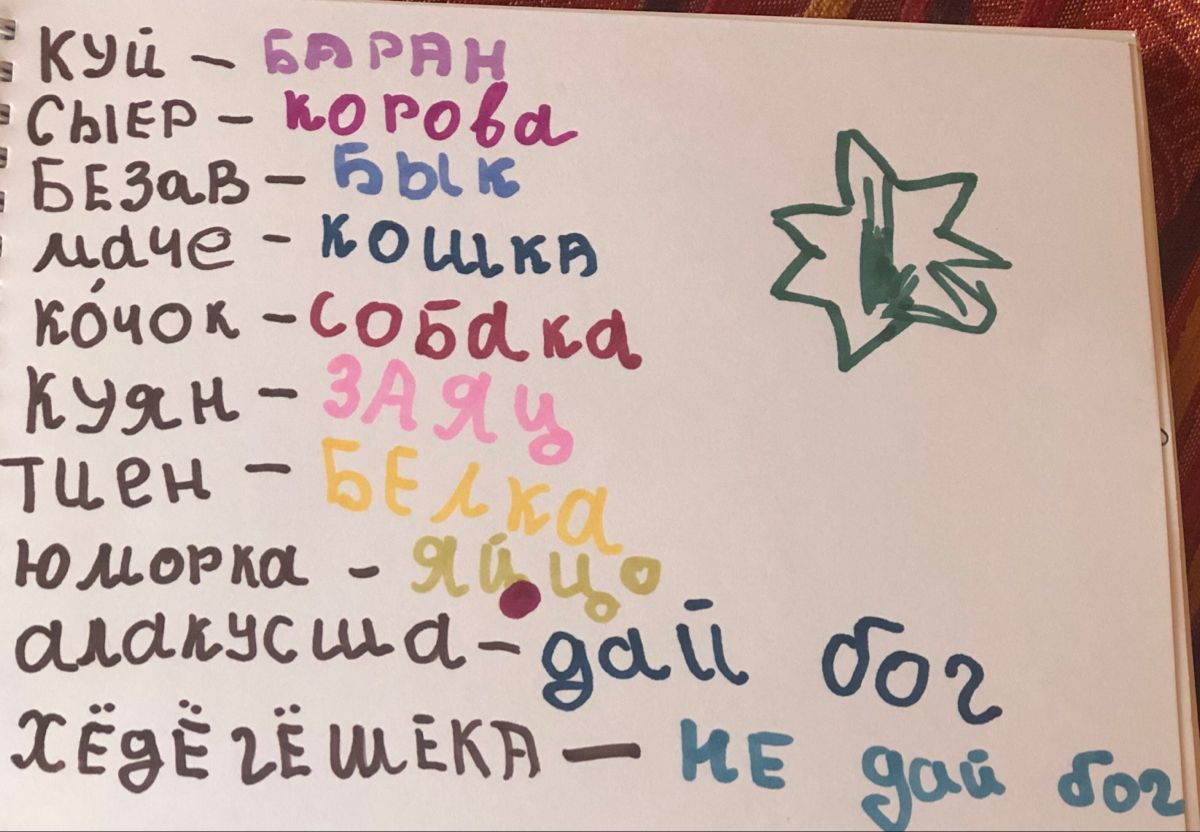 КУЙ – БАРАН
СЫЕР – КОРОВа
БЕЗаВ – БЫК
маче – КОШКА
ко́чок – СОБака
Куян – ЗАЯЦ
тиен – БЕЛКа
юморка – яйцо
алакусша – дай бог
ХЁДЁГЁШЕКА – НЕ дай бог